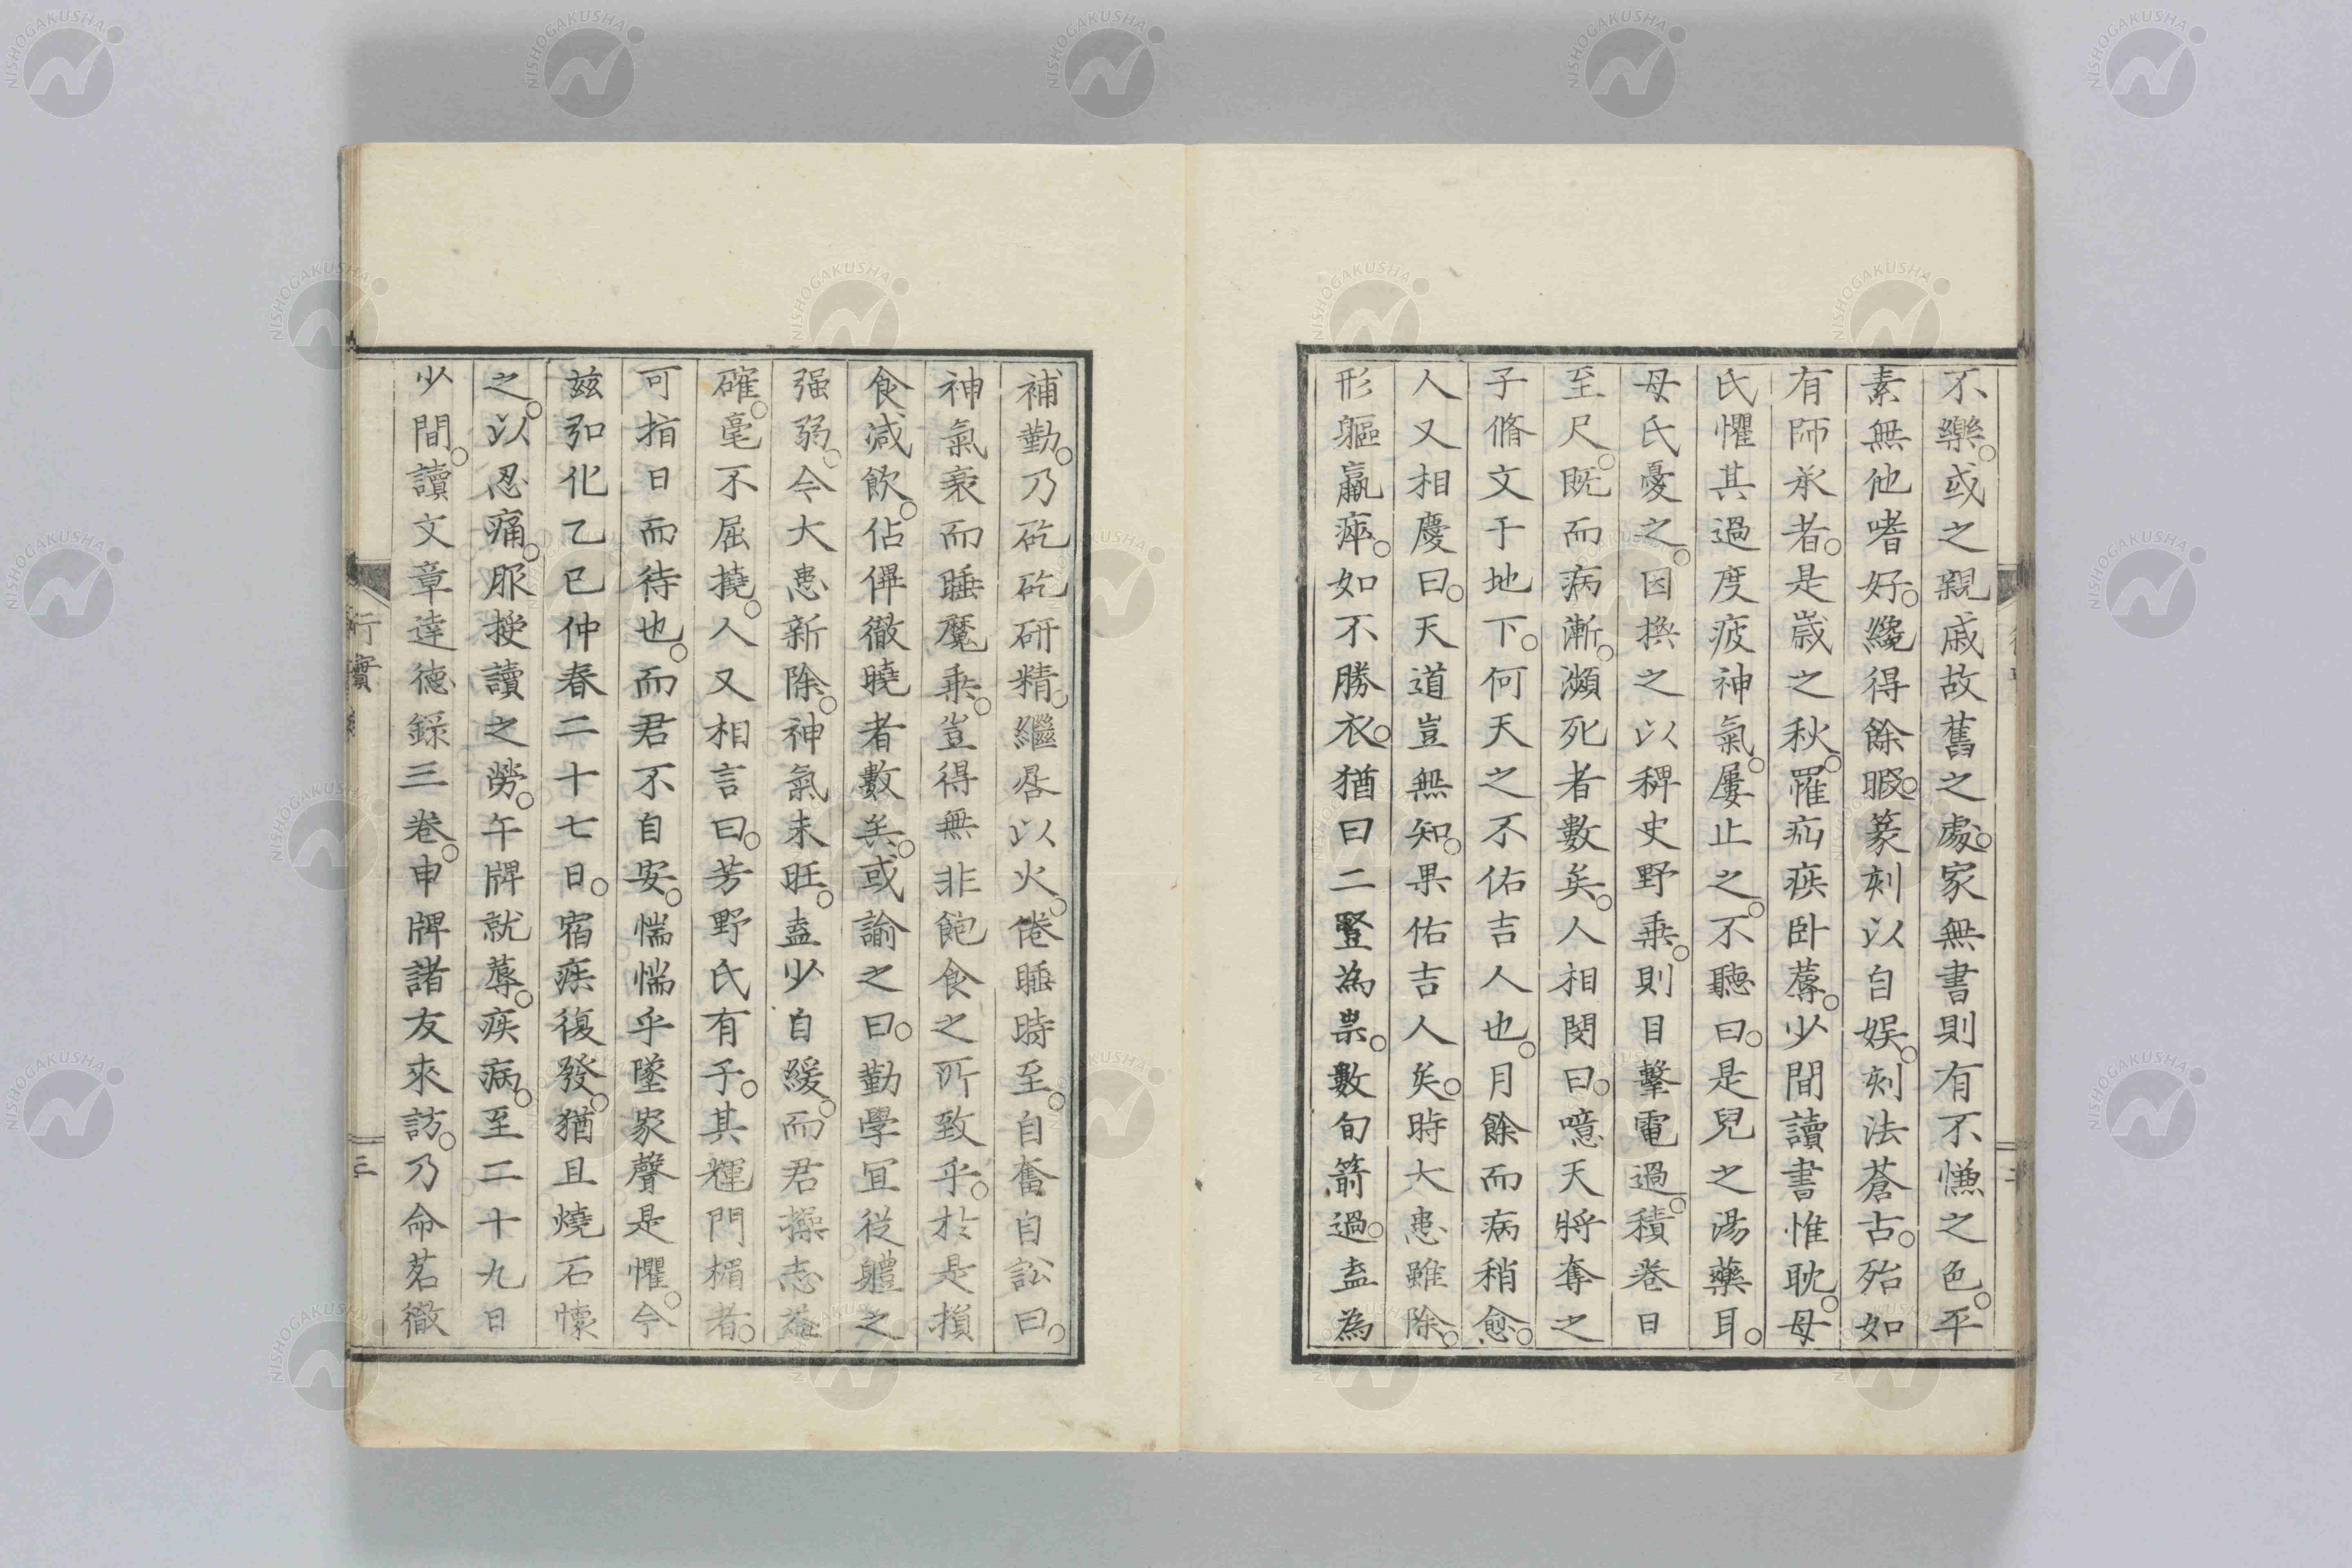 不樂。或之親戚故舊之處。家無書則有不慊之色。平
素無他嗜好。纔得餘暇。篆刻以自娯。刻法蒼古。殆如
有師承者。是嵗之秋。罹疝疾卧蓐。少間讀書惟耽。母
氏懼其過度疲神氣。屢止之。不聽曰。是兒之湯藥耳。
母氏憂之。因換之以稗史野乗。則目擊電過。積巻日
至尺。既而病漸。瀕死者數矣。人相閔曰。噫天將奪之
子脩文于地下。何天之不佑吉人也。月餘而病稍愈。
人又相慶曰。天道豈無知。果佑吉人矣。時大患雖除。
形軀羸瘁。如不勝衣。猶曰二豎為祟。數旬箭過。盍為
補勤。乃矻矻研精。繼晷以火。倦睡時至。自奮自訟曰。
神氣衰而睡魔乗。豈得無非飽食之所致乎。於是損
食減飲。佔俾徹曉者數矣。或諭之曰。勤學冝從軆之
强弱。今大患新除。神氣未旺。盍少自緩。而君操志益
確。毫不屈撓。人又相言曰。芳野氏有子。其輝門楣者。
可指日而待也。而君不自安。惴惴乎墜家聲是懼。今
茲弘化乙巳仲春二十七日。宿疾復發。猶且燒石懷
之。以忍痛。服授讀之勞。午牌就蓐。疾病。至二十九日
少間。讀文章達德錄三巻。申牌諸友來訪。乃命茗徹
行實
三
NISHOGAKUSHA